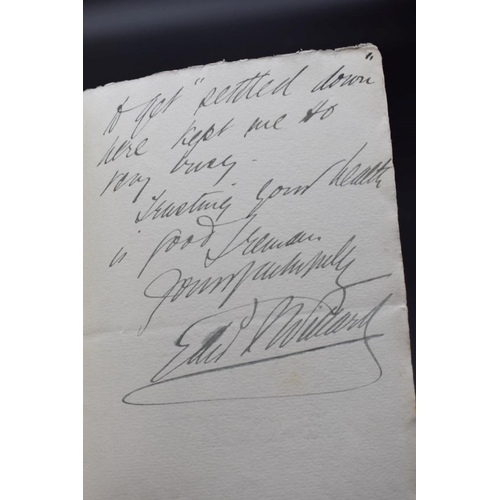 to get "settled down"
here kept me so
very busy.
Trusting your health
is good I remain
Yours faithfully
Willard